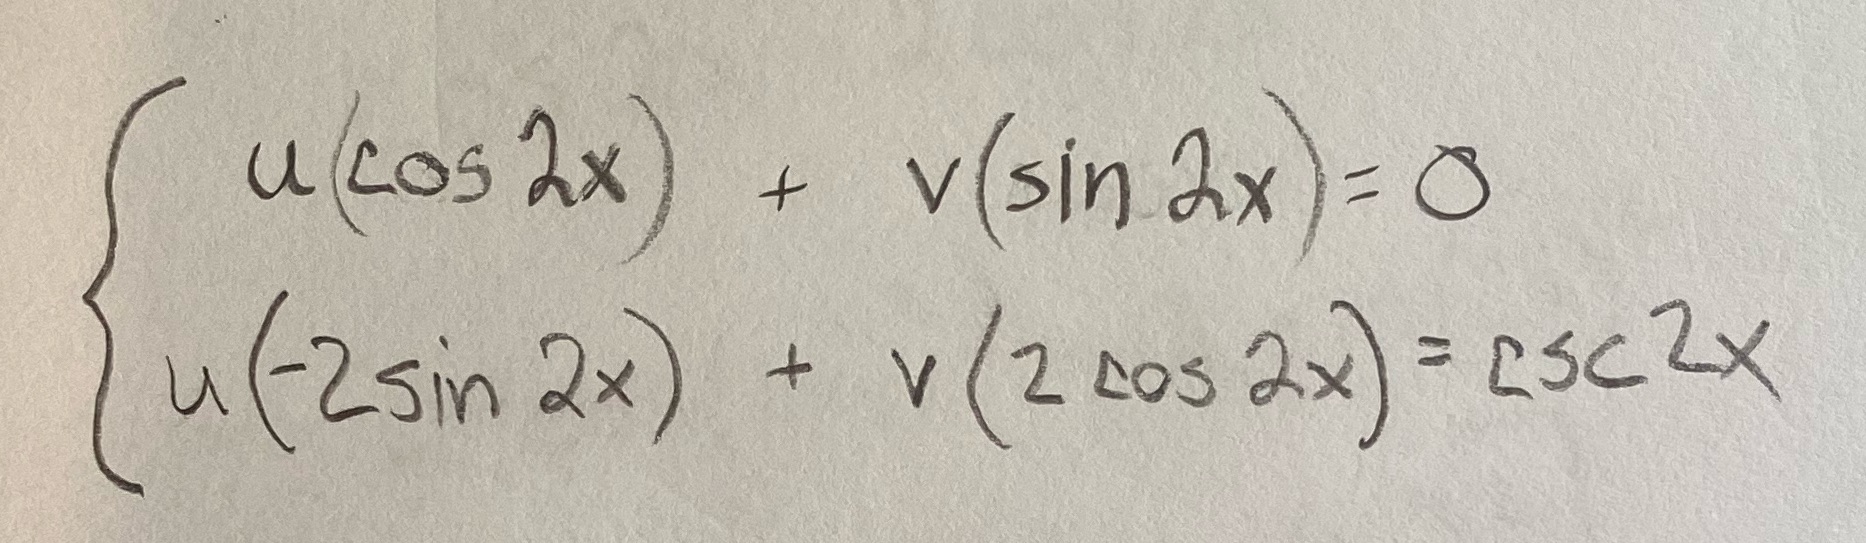 u(cos 2x) + v(sin 2x) = 0
u(-2sin 2x) + v(2 cos 2x) = csc 2x